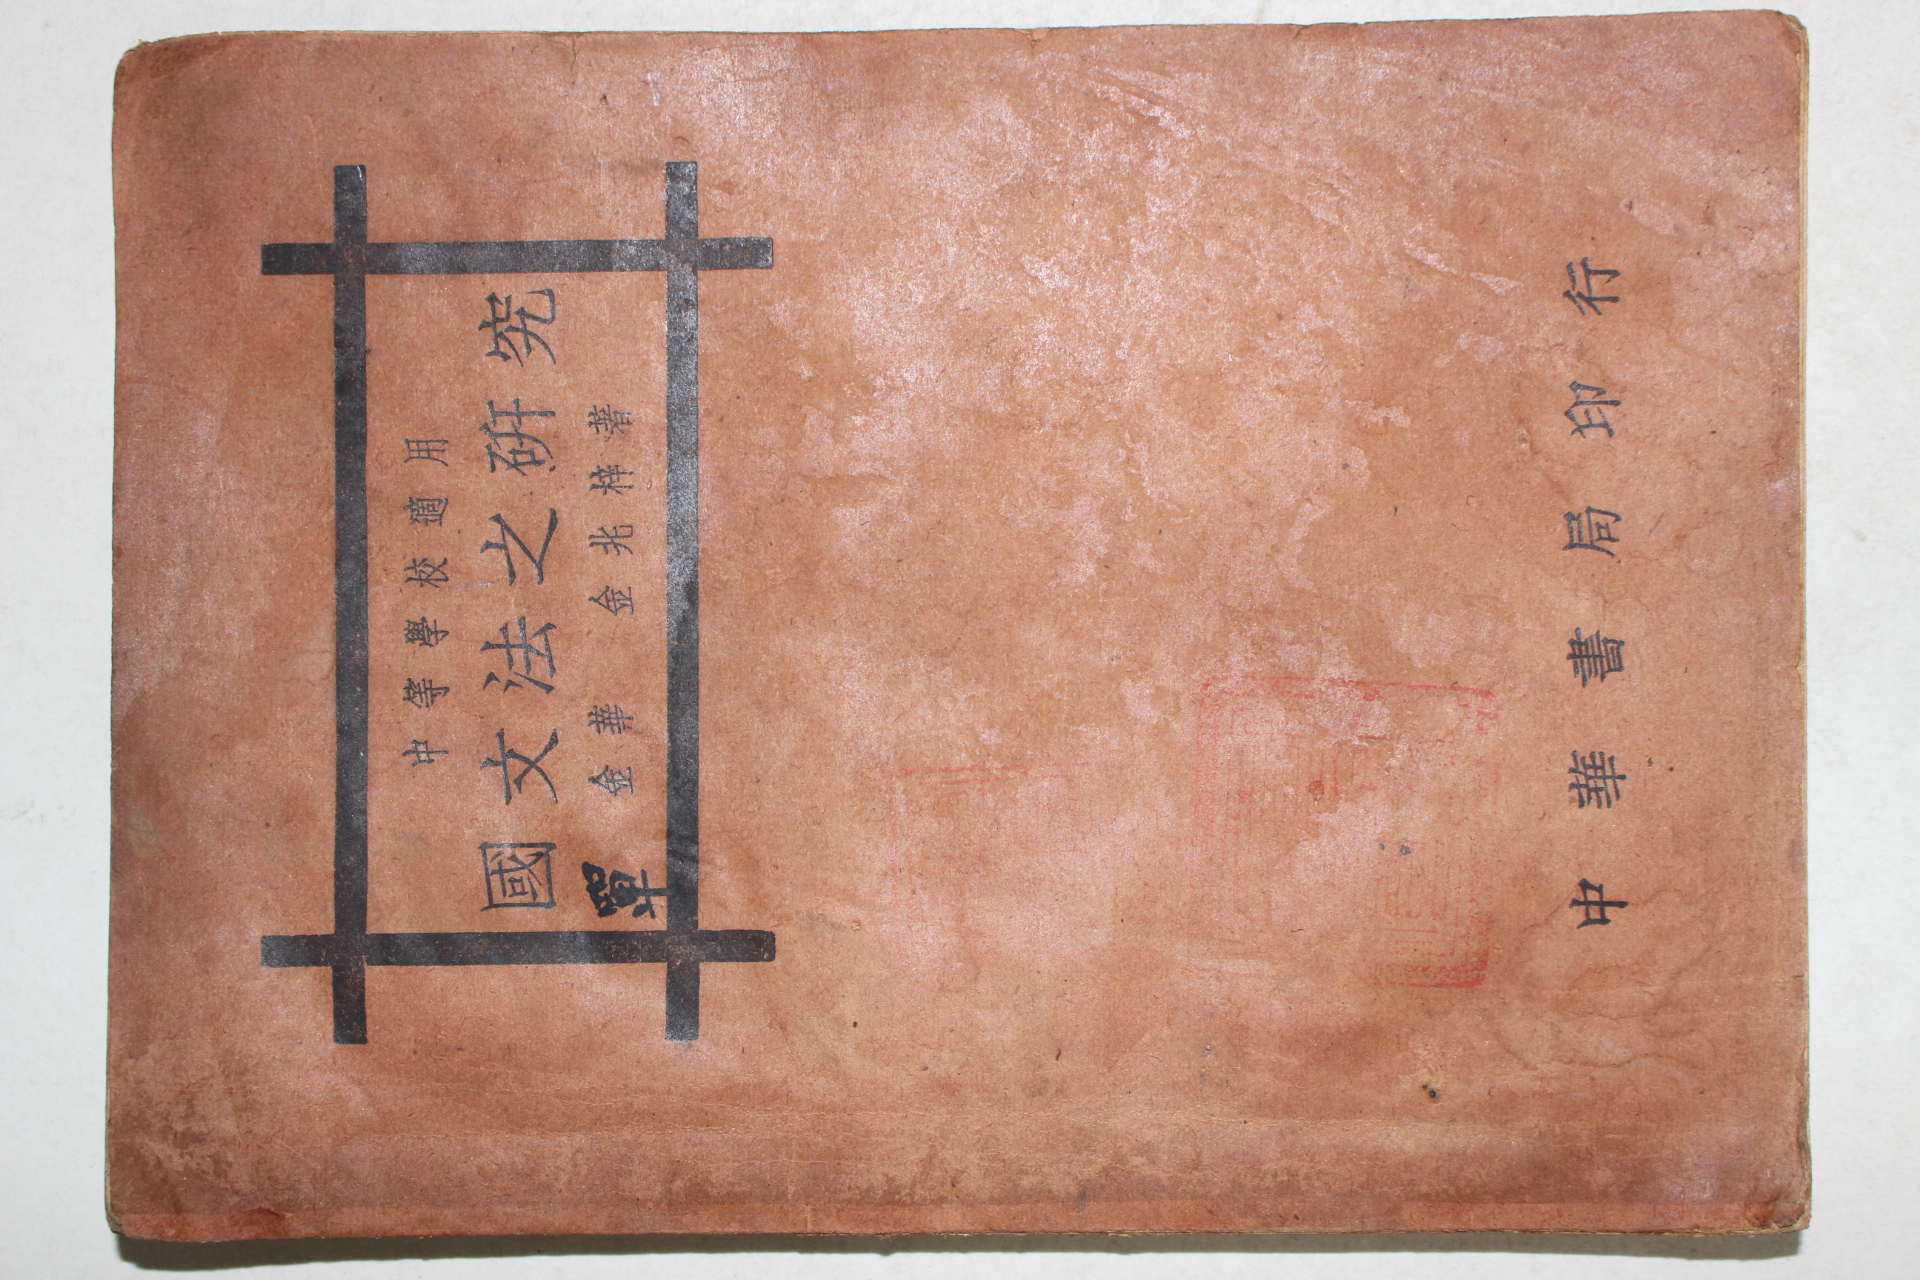 中等學校適用
國文法之研究
金華 金兆梓著
單
中華書局印行